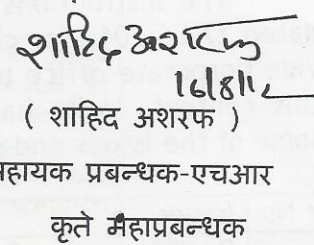 शाहिद अशरफ
16/8/12
( शाहिद अशरफ )
सहायक प्रबन्धक-एचआर
कृते महाप्रबन्धक